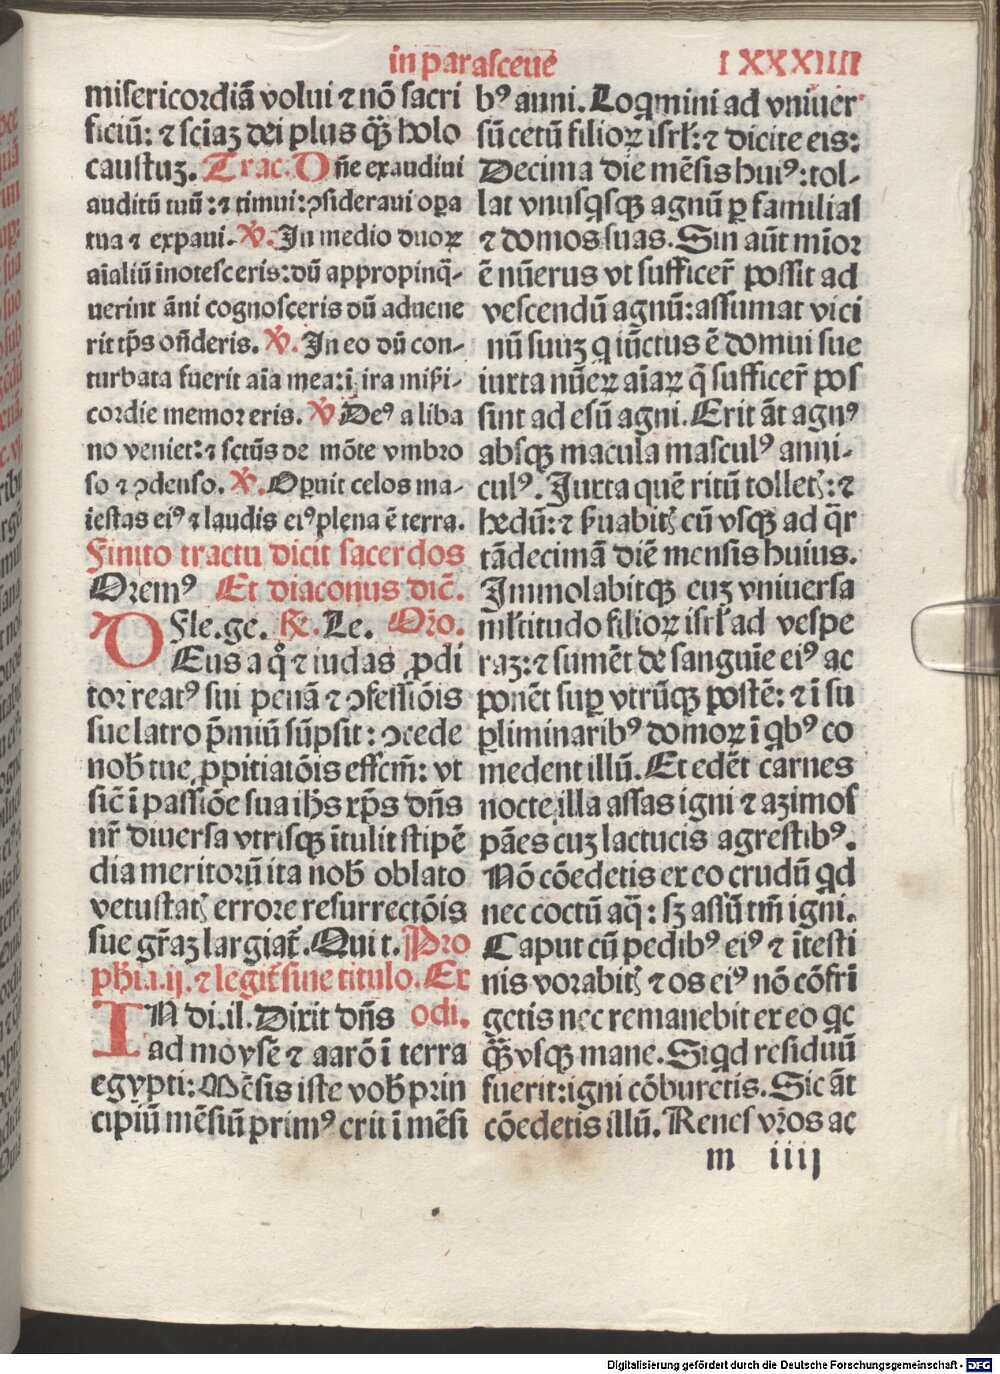 in parasceue LXXXIIII
misericordiā volui ⁊ nō sacri
ficiū: ⁊ sciaꝫ dei plus q̄ꝫ holo
caustuꝫ. Trac. Dn̄e exaudiui
auditū tuū: ⁊ timui: ꝯsideraui oꝑa
tua ⁊ expaui. ℣. In medio duoꝝ
aīaliū īnotesceris: dū appropinq̄-
uerint āni cognosceris dū aduene
rit tp̄s on̄deris. ℣. In eo dū con-
turbata fuerit aīa mea: ī ira mīsi-
cordie memor eris. ℣ Deꝰ a liba
no veniet: ⁊ sctūs de mōte vmbro
so ⁊ ꝯdenso. ℣. Oꝑuit celos ma-
iestas eiꝰ ⁊ laudis eiꝰ plena ē terra.
Finito tractu dicit sacerdos
Oremꝰ Et diaconus dic̄.
Fle. ge. R̄. Le. Or̄o.
DEus a q̊ ⁊ iudas ꝓdi
tor reatꝰ sui penā ⁊ ꝯfessiōis
sue latro p̄miū sūpsit: ꝯcede
nob̄ tue ꝓpitiatōis effcm̄: vt
sic̄ ī passiōe sua ih̄s xp̄s dn̄s
nr̄ diuersa vtrisqꝫ ītulit stipē
dia meritorū ita nob̄ oblato
vetustatꝭ errore resurrectōis
sue gr̄aꝫ largiat̄. Qui t. Pro
ph̄ia. ij. ⁊ legit̄ sine titulo. Ex
IN di. il. Dixit dn̄s odi.
ad moysē ⁊ aarō ī terra
egypti: Mēsis iste vob̄ prin
cipiū mēsiū primꝰ erit ī mēsi
bꝰ anni. Loqͥmini ad vniuer
sū cetū filioꝝ isrl̄: ⁊ dicite eis:
Decima die mēsis huiꝰ: tol-
lat vnusqͥsqꝫ agnū ꝑ familias
⁊ domos suas. Sin aūt mīor
ē nūerus vt sufficer̄ possit ad
vescendū agnū: assumat vici
nū suuꝫ qͥ iūctus ē domui sue
iuxta nūeꝝ aīaꝝ q̄ sufficer̄ pos
sint ad esū agni. Erit āt agnꝰ
absqꝫ macula masculꝰ anni-
culꝰ. Iuxta quē ritū tolletꝭ: ⁊
hedū: ⁊ ẜuabitꝭ eū vsqꝫ ad q̄r
tādecimā diē mensis huius.
Immolabitqꝫ euꝫ vniuersa
ml̄titudo filioꝝ isrl̄ ad vespe
raꝫ: ⁊ sumēt de sanguīe eiꝰ ac
ponēt suꝑ vtrūqꝫ postē: ⁊ ī su
ꝑliminaribꝰ domoꝝ ī qͥbꝰ co
medent illū. Et edēt carnes
nocte illa assas igni ⁊ azimos
pāes cuꝫ lactucis agrestibꝰ.
Nō cōedetis ex eo crudū qͥd
nec coctū aq̄: sꝫ assū tm̄ igni.
Caput cū pedibꝰ eiꝰ ⁊ ītesti
nis vorabitꝭ ⁊ os eiꝰ nō cōfri
getis nec remanebit ex eo qͥc
q̄ꝫ vsqꝫ mane. Si qͥd residuū
fuerit: igni cōburetis. Sic āt
cōedetis illū. Renes vr̄os ac
m iiij
Digitalisierung gefördert durch die Deutsche Forschungsgemeinschaft - DFG